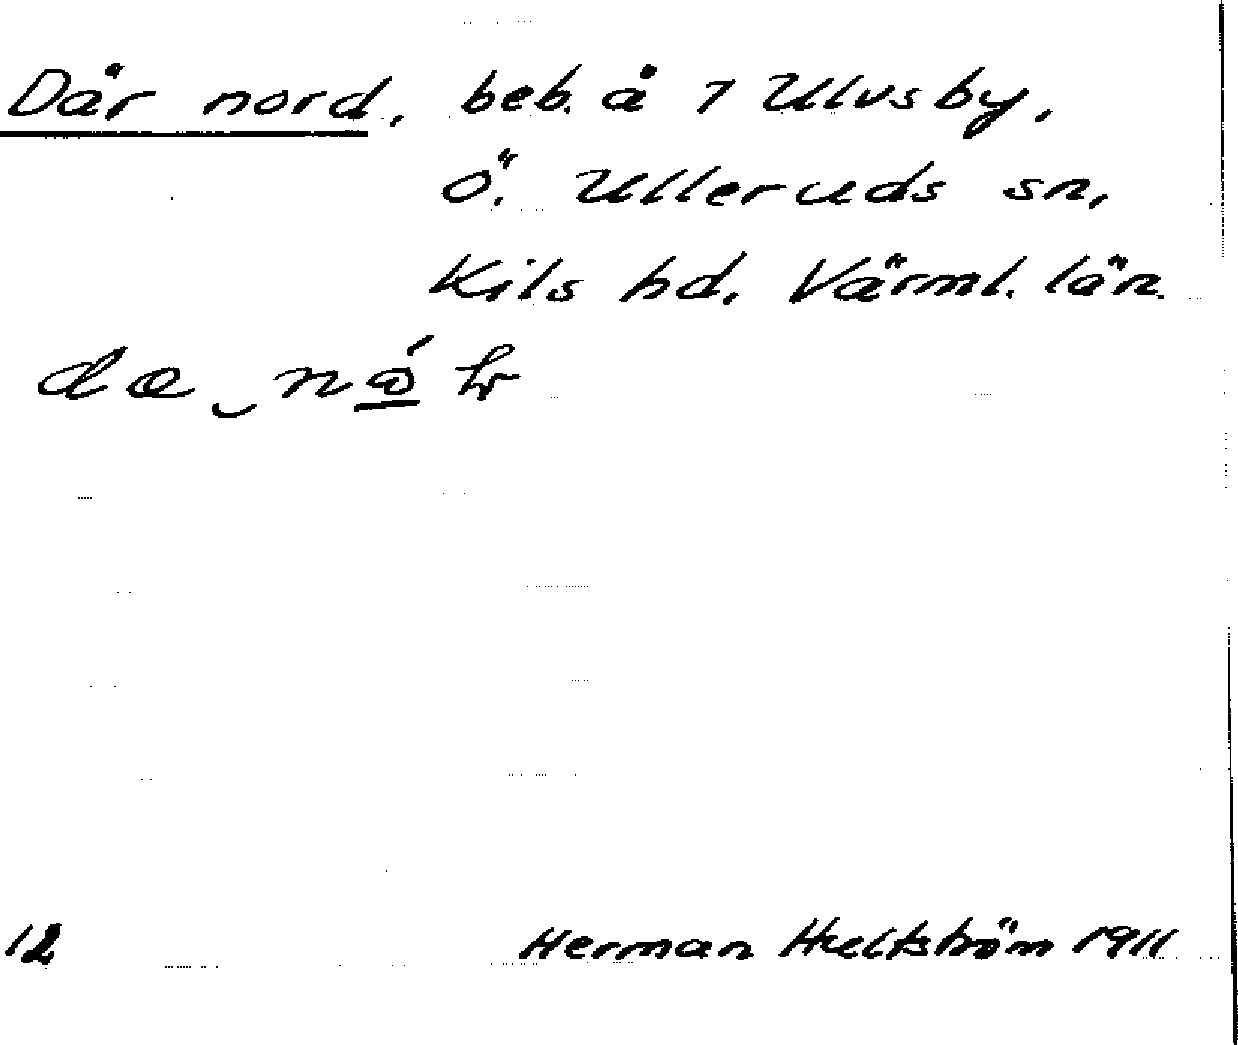 Där nord, beb. å 7 Ulvsby,
Ö. Ulleruds sn,
Kils hd. Värml. län.
12
Herman Hultström 1911